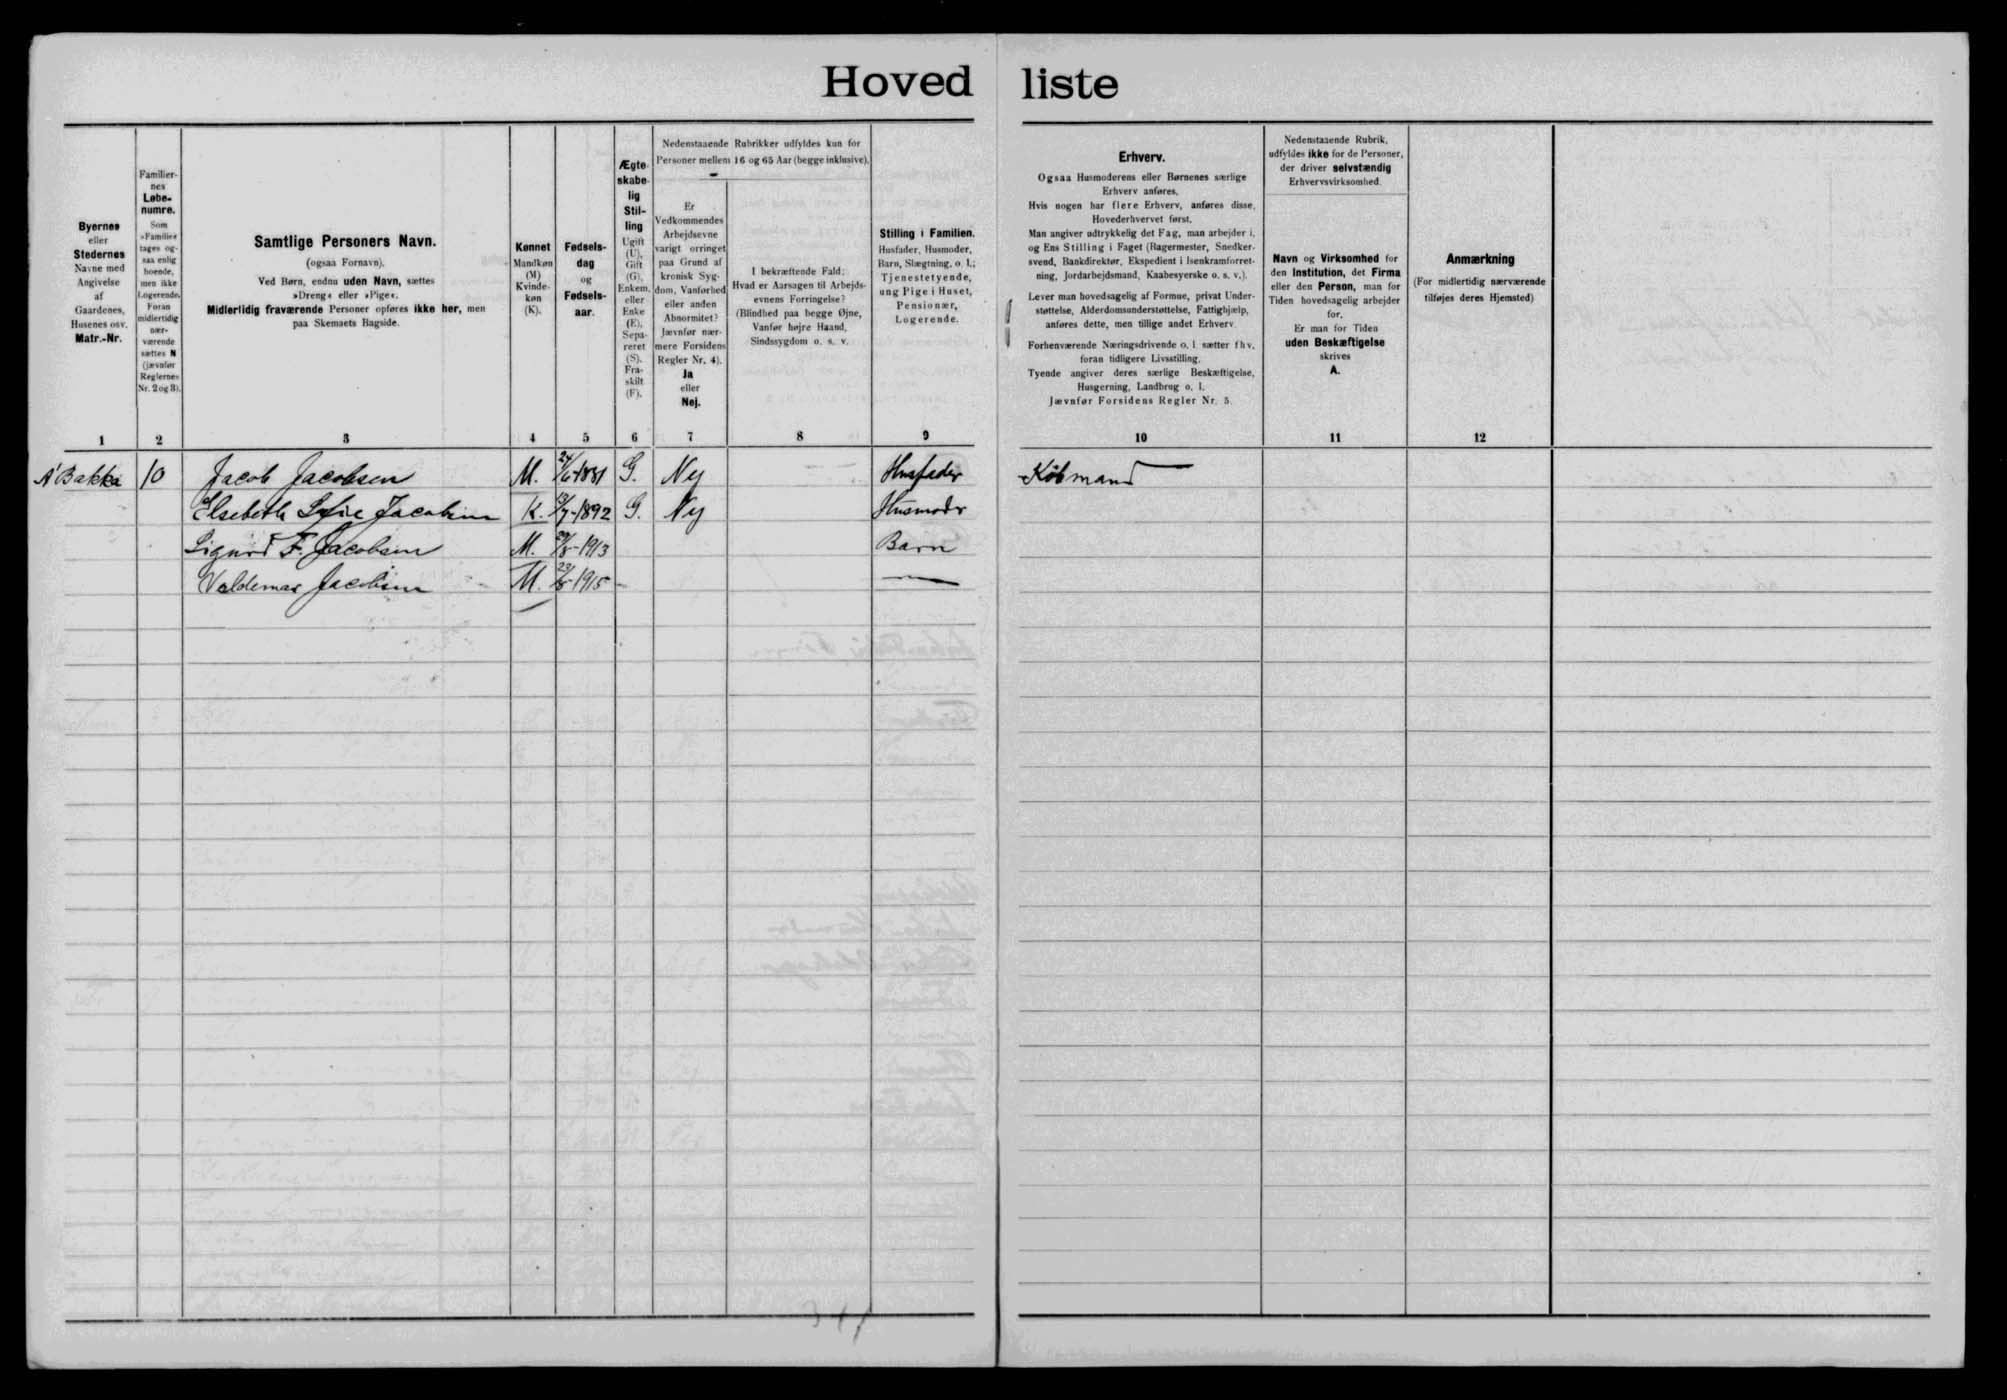 Hovedliste
Byernes
eller
Stedernes
Navne med
Angivelse
af
Gaardenes,
Husenes osv.
Matr.-Nr.
1
Familier-
nes
Løbe-
numre.
Som
»Familie«
tages og-
saa enlig
boende,
men ikke
Logerende.
Foran
midlertidig
nær-
værende
sættes N
(jævnfør
Reglernes
Nr. 2 og 3).
2
Samtlige Personers Navn.
(ogsaa Fornavn).
Ved Børn, endnu uden Navn, sættes
»Dreng« eller »Pige«.
Midlertidig fraværende Personer opføres ikke her, men
paa Skemaets Bagside.
3
Kønnet
Mandkøn
(M)
Kvinde-
køn
(K).
4
Fødsels-
dag
og
Fødsels-
aar.
5
Ægte-
skabe-
lig
Stil-
ling
Ugift
(U),
Gift
(G),
Enkem.
eller
Enke
(E),
Sepa-
reret
(S).
Fra-
skilt
(F).
6
Nedenstaaende Rubrikker udfyldes kun for
Personer mellem 16 og 65 Aar (begge inklusive).
Er
Vedkommendes
Arbejdsevne
varigt forringet
paa Grund af
kronisk Syg-
dom, Vanførhed
eller anden
Abnormitet?
Jævnfør nær-
mere Forsidens
Regler Nr. 4).
Ja
eller
Nej.
7
I bekræftende Fald:
Hvad er Aarsagen til Arbejds-
evnens Forringelse?
(Blindhed paa begge Øjne,
Vanfør højre Haand,
Sindssygdom o. s. v.
8
Stilling i Familien.
Husfader, Husmoder,
Barn, Slægtning, o. l.;
Tjenestetyende,
ung Pige i Huset,
Pensionær,
Logerende.
9
Erhverv.
Ogsaa Husmoderens eller Børnenes særlige
Erhverv anføres.
Hvis nogen har flere Erhverv, anføres disse,
Hovederhvervet først.
Man angiver udtrykkelig det Fag, man arbejder i,
og Ens Stilling i Faget (Bagermester, Snedker-
svend, Bankdirektør, Ekspedient i Isenkramforret-
ning, Jordarbejdsmand, Kaabesyerske o. s. v.).
Lever man hovedsagelig af Formue, privat Under-
støttelse, Alderdomsunderstøttelse, Fattighjælp,
anføres dette, men tillige andet Erhverv
Forhenværende Næringsdrivende o. l. sætter fhv.
foran tidligere Livsstilling.
Tyende angiver deres særlige Beskæftigelse,
Husgerning, Landbrug o. l.
Jævnfør Forsidens Regler Nr. 5.
10
Nedenstaaende Rubrik,
udfyldes ikke for de Personer,
der driver selvstændig
Erhvervsvirksomhed.
Navn og Virksomhed for
den Institution, det Firma
eller den Person, man for
Tiden hovedsagelig arbejder
for.
Er man for Tiden
uden Beskæftigelse
skrives
A.
11
Anmærkning
(For midlertidig nærværende
tilføjes deres Hjemsted)
12
A' Bakka 10 Jacob Jacobsen M. 24/6-1881 G. Nej Husfader Købmand
Elsebeth Sofie Jacobsen K. /7-1892 G. Nej Husmoder
Sigurd F. Jacobsen M. /8-1913 Barn
Valdemar Jacobsen M. -1915 —
341